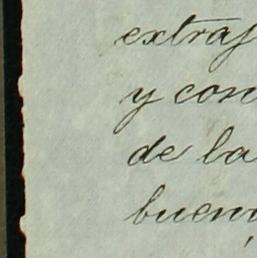 extraj
y con
de la
buen